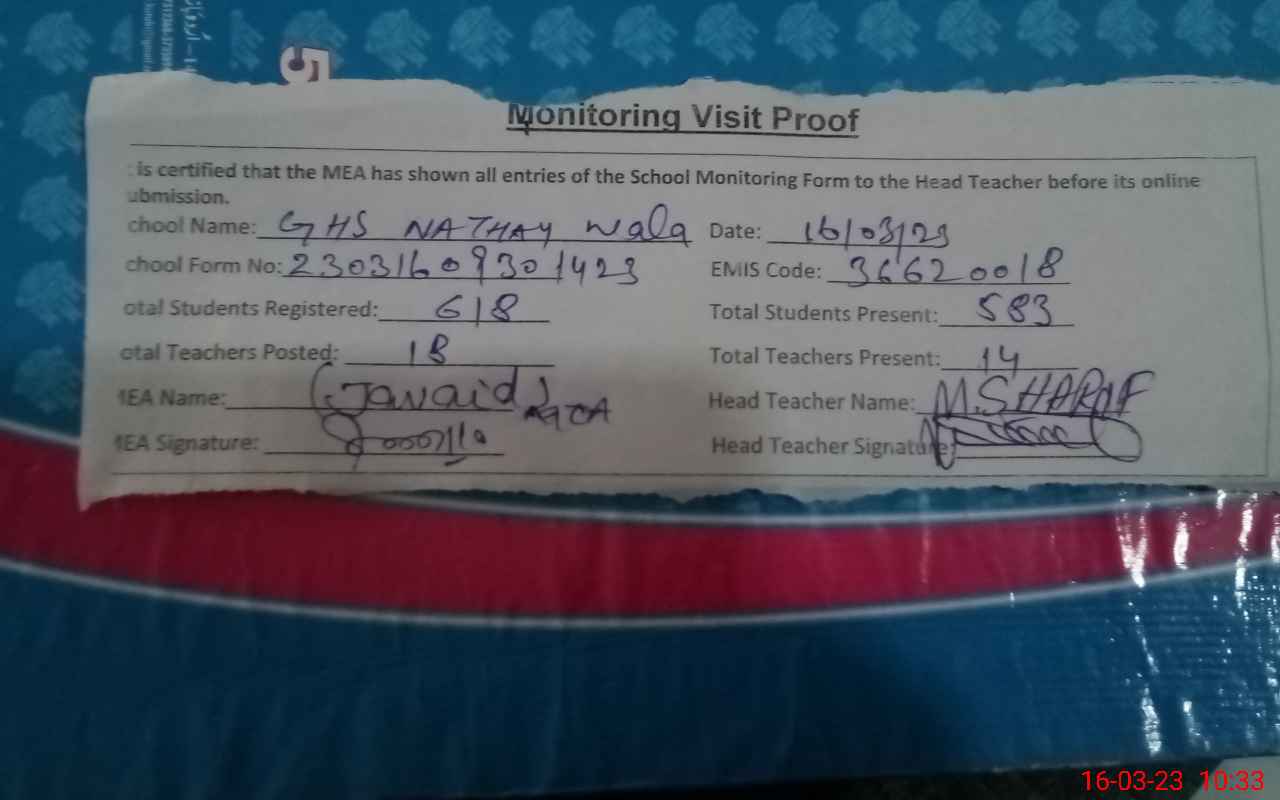 5
Monitoring Visit Proof
is certified that the MEA has shown all entries of the School Monitoring Form to the Head Teacher before its online
ubmission.
chool Name: GHS NATHAY Wala Date: 16/03/23
chool Form No: 23031609301423 EMIS Code: 36620018
otal Students Registered: 618 Total Students Present: 583
otal Teachers Posted: 18 Total Teachers Present: 14
MEA Name: (Javaid) Head Teacher Name: M.SHARAF
MEA Signature: Head Teacher Signature:
16-03-23 10:33